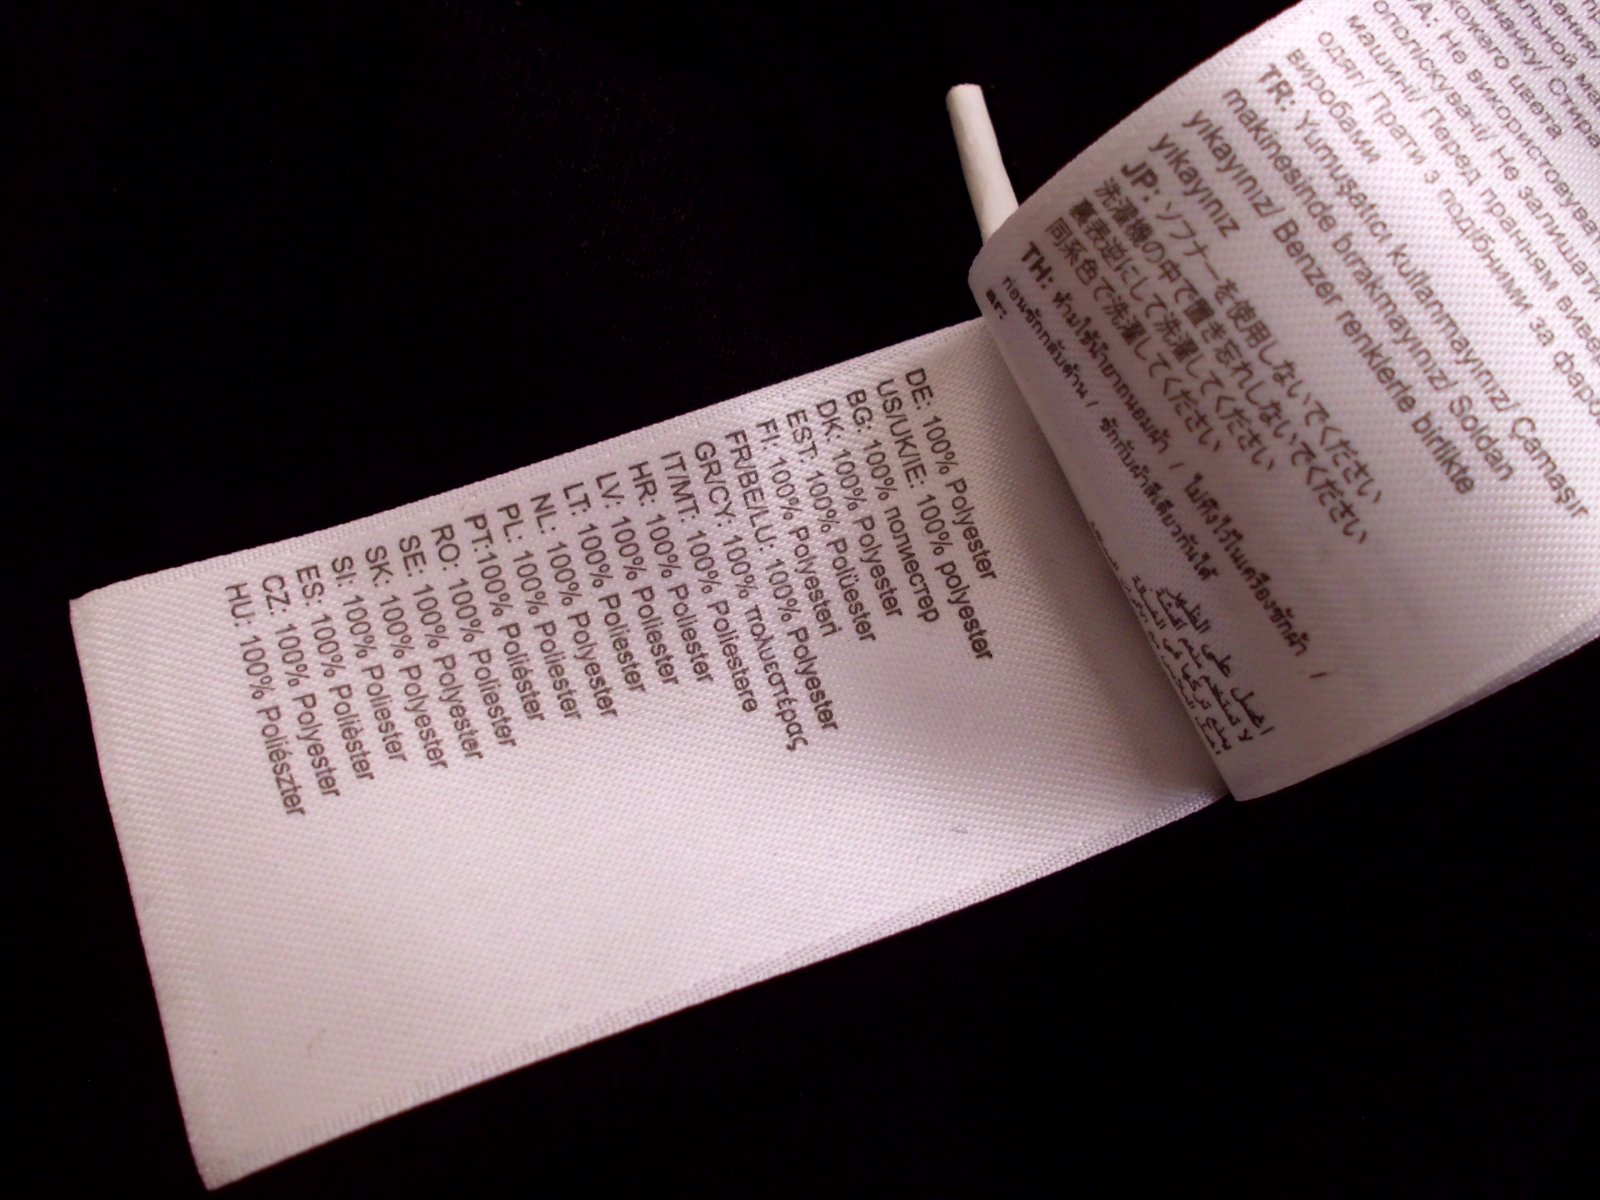 DE: 100% Polyester
US/UK/IE: 100% polyester
BG: 100% полиестер
DK: 100% Polyester
EST: 100% Polüester
FI: 100% Polyesteri
FR/BE/LU: 100% Polyester
GR/CY: 100% πολυεστέρας
IT/MT: 100% Poliestere
HR: 100% Poliester
LV: 100% Poliester
LT: 100% Poliester
NL: 100% Polyester
PL: 100% Poliester
PT:100% Poliéster
RO: 100% Poliester
SE: 100% Polyester
SK: 100% Polyester
SI: 100% Poliester
ES: 100% Polièster
CZ: 100% Polyester
HU: 100% Poliészter
UA: Не використовувати
ополіскувачі/ Не залишати
машині/ Перед пранням виве
одяг/ Прати з подібними за фарб
виробами
TR: Yumuşatıcı kullanmayınız/ Çamaşır
makinesinde bırakmayınız/ Soldan
yıkayınız/ Benzer renklerle birlikte
yıkayınız
JP: ソフナーを使用しないでください
洗濯機の中で置き忘れしないでください
裏表逆にして洗濯してください
同系色で洗濯してください
TH: ห้ามใช้น้ำยาถนอมผ้า / ไม่ทิ้งไว้ในเครื่องซักผ้า /
ก่อนซักกลับด้าน / ซักกับผ้าสีเดียวกันได้
ar:
اغسل على الظهر